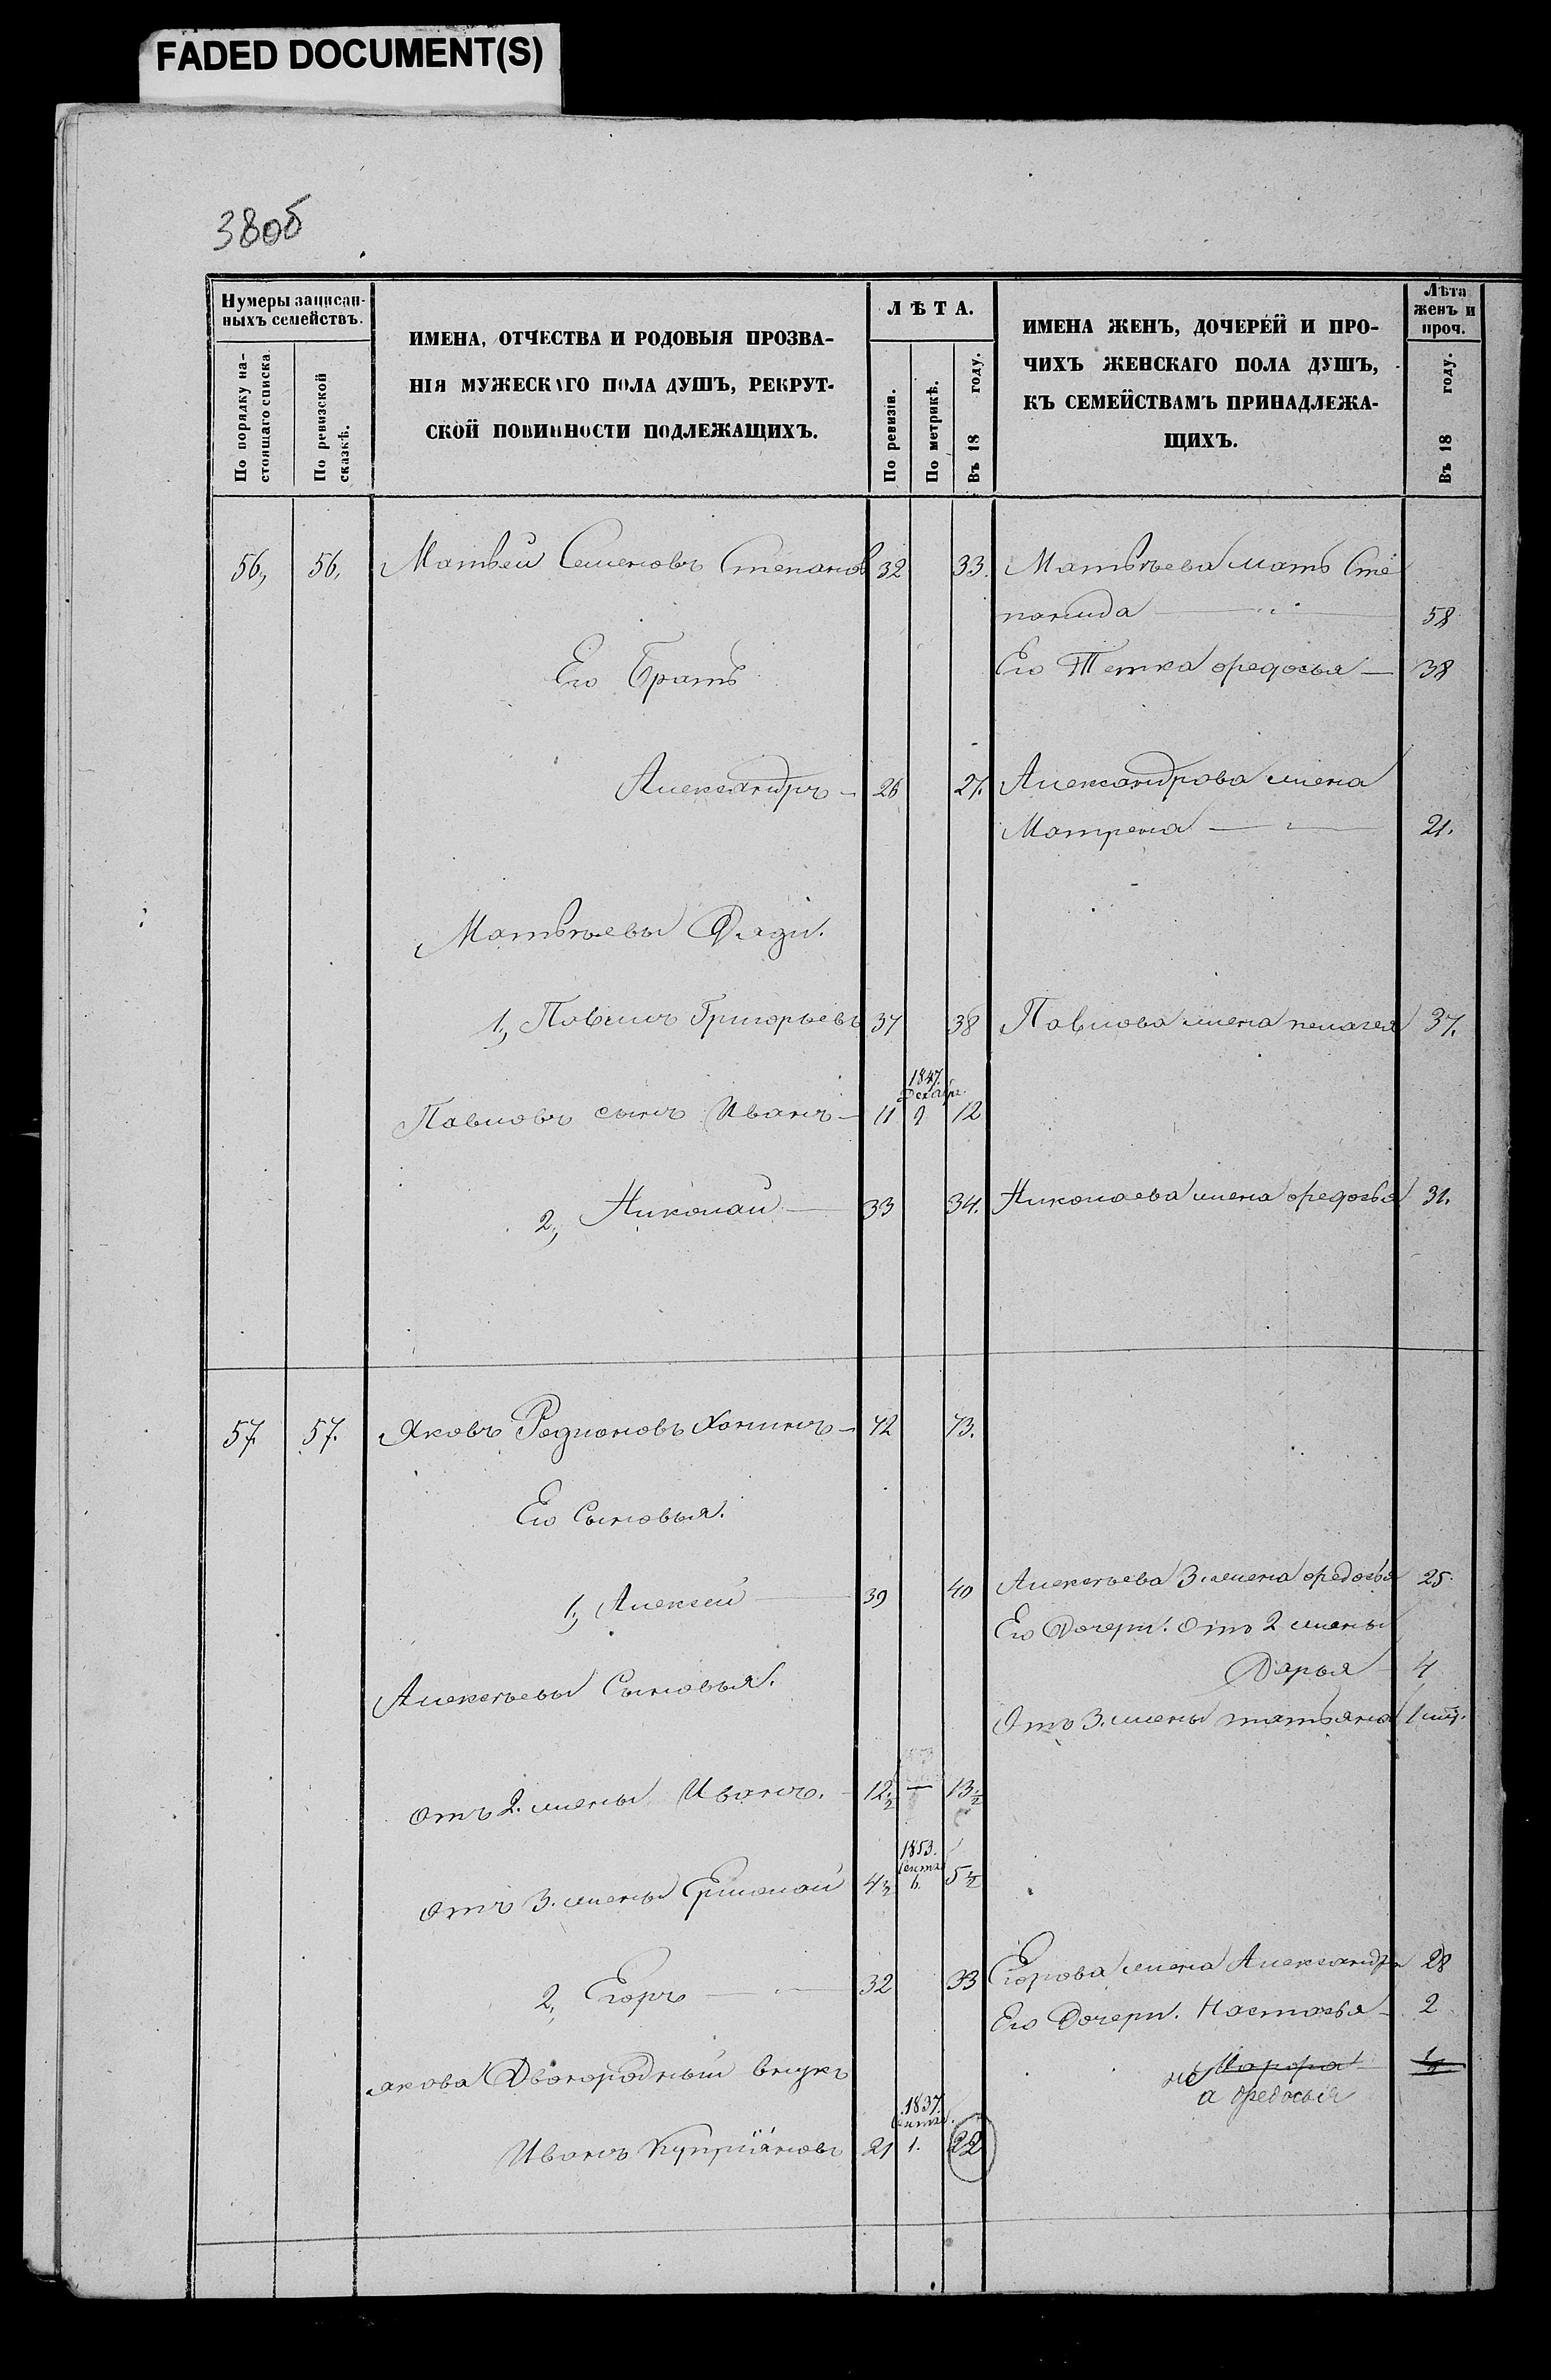 FADED DOCUMENT(S)
38об
Нумеры записан-
ныхъ семействъ.
По порядку на-
стоящаго списка.
По ревизской
сказкѣ.
ИМЕНА, ОТЧЕСТВА И РОДОВЫЯ ПРОЗВА-
НІЯ МУЖЕСКАГО ПОЛА ДУШЪ, РЕКРУТ-
СКОЙ ПОВИННОСТИ ПОДЛЕЖАЩИХЪ.
ЛѢТА.
По ревизіи.
По метрикѣ.
Въ 18 году.
ИМЕНА ЖЕНЪ, ДОЧЕРЕЙ И ПРО-
ЧИХЪ ЖЕНСКАГО ПОЛА ДУШЪ,
КЪ СЕМЕЙСТВАМЪ ПРИНАДЛЕЖА-
ЩИХЪ.
Лѣта
женъ и
проч.
Въ 18 году.
56, 56, Матвей Семеновъ Степанов 32 33. Матвѣева мать Сте
панида — 58
Его Братъ Его Тетка Ѳедосья — 38
Александръ — 26 27. Александрова жена
Матрена — 21.
Матвѣевы Дяди.
1, Павелъ Григорьевъ 37 38 Павлова жена пелагея 37.
1847.
Декабр
Павловъ сынъ Иванъ — 11 9 12
2, Николай — 33 34. Николаева жена Ѳедосья 31.
57. 57. Яковъ Родионовъ Хонинъ — 72 73.
Его Сыновья.
1, Алексей — 39 40 Алексѣева 3. жена Ѳедосья 25.
Его Дочери. Отъ 2 жены
Дарья — 4
Алексѣевы Сыновья.
Отъ 3. жены татьяна 1 мц.
Отъ 2. жены Иванъ. — 12½ — 13½
1853.
Сентя
Отъ 3. жены Ермолай 4½ 6. 5½
2, Егоръ — 32 33 Егорова жена Александра 28
Его Дочери. Настасья — 2
Якова Двоюродный внукъ
не Марфа ½
а Ѳедосья
1837.
Сентя.
Иванъ Куприяновъ 21 1. 22